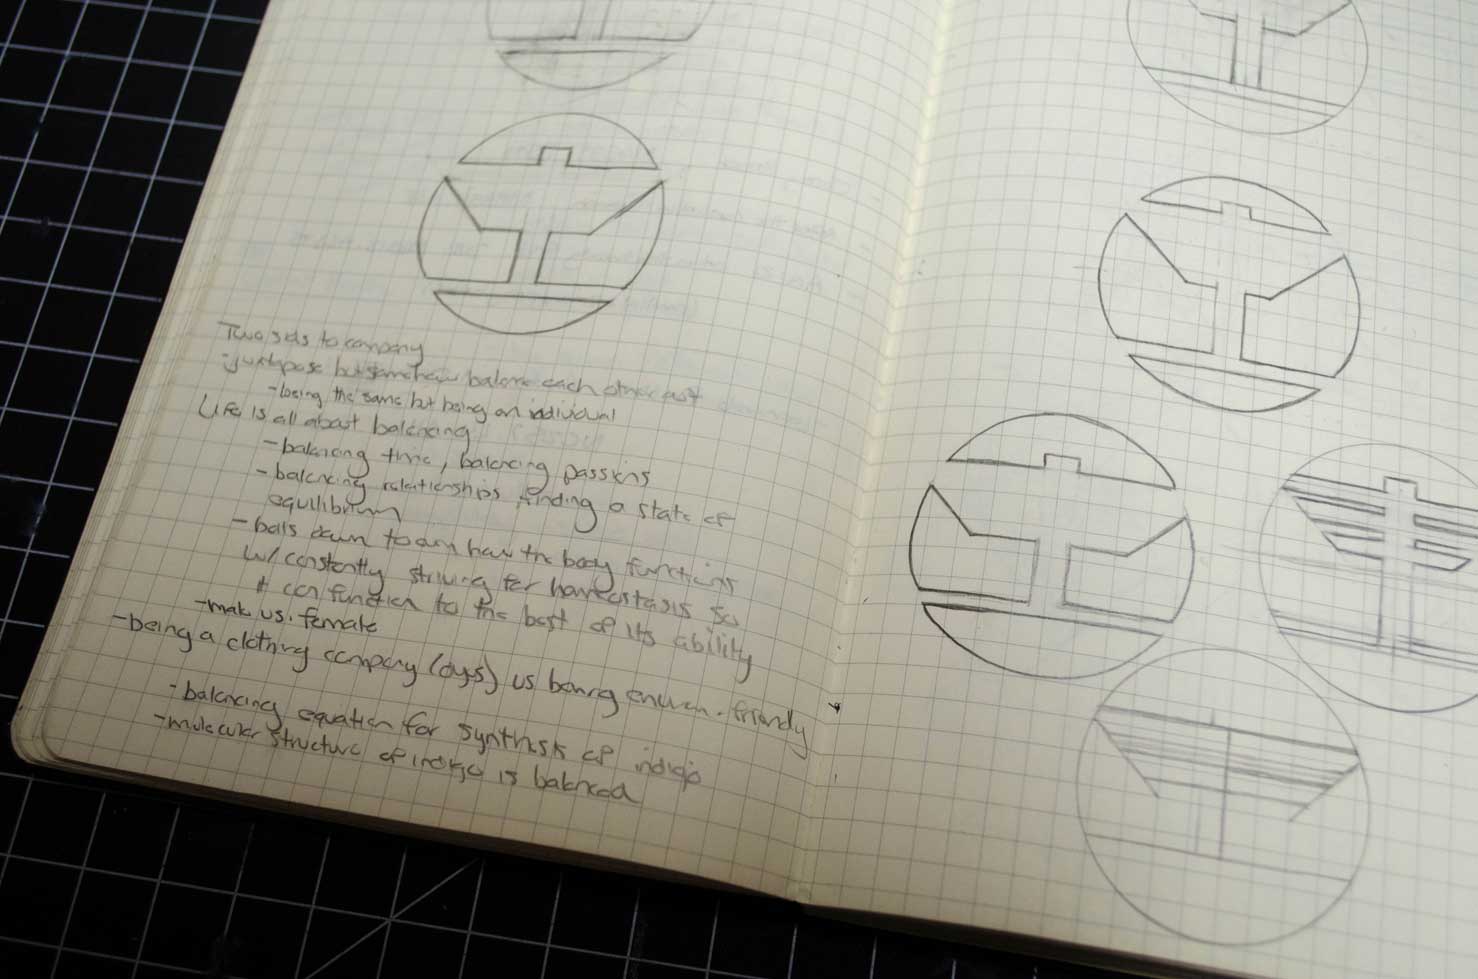 Two sides to company
- juxtpose but somehow balance each other out
- being the same but being an individual
Life is all about balancing
- balancing time, balancing passions
- balancing relationships finding a state of
equilibrium
- boils down to even how the body functions
w/ constantly striving for homeostasis so
it can function to the best of its ability
- male vs. female
- being a clothing company (dyes) vs being envirn. friendly
- balancing equation for synthesis of indigo
- molecular structure of indigo is balanced